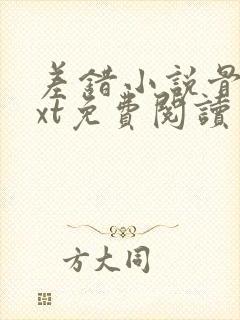 差錯小說最
xt免費閱讀
方大同